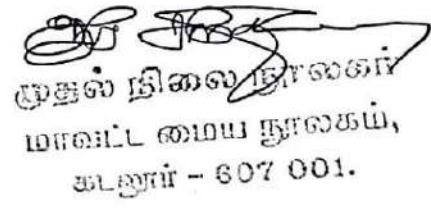 முதல் நிலை நூலகர்
மாவட்ட மைய நூலகம்,
கடலூர் - 607 001.